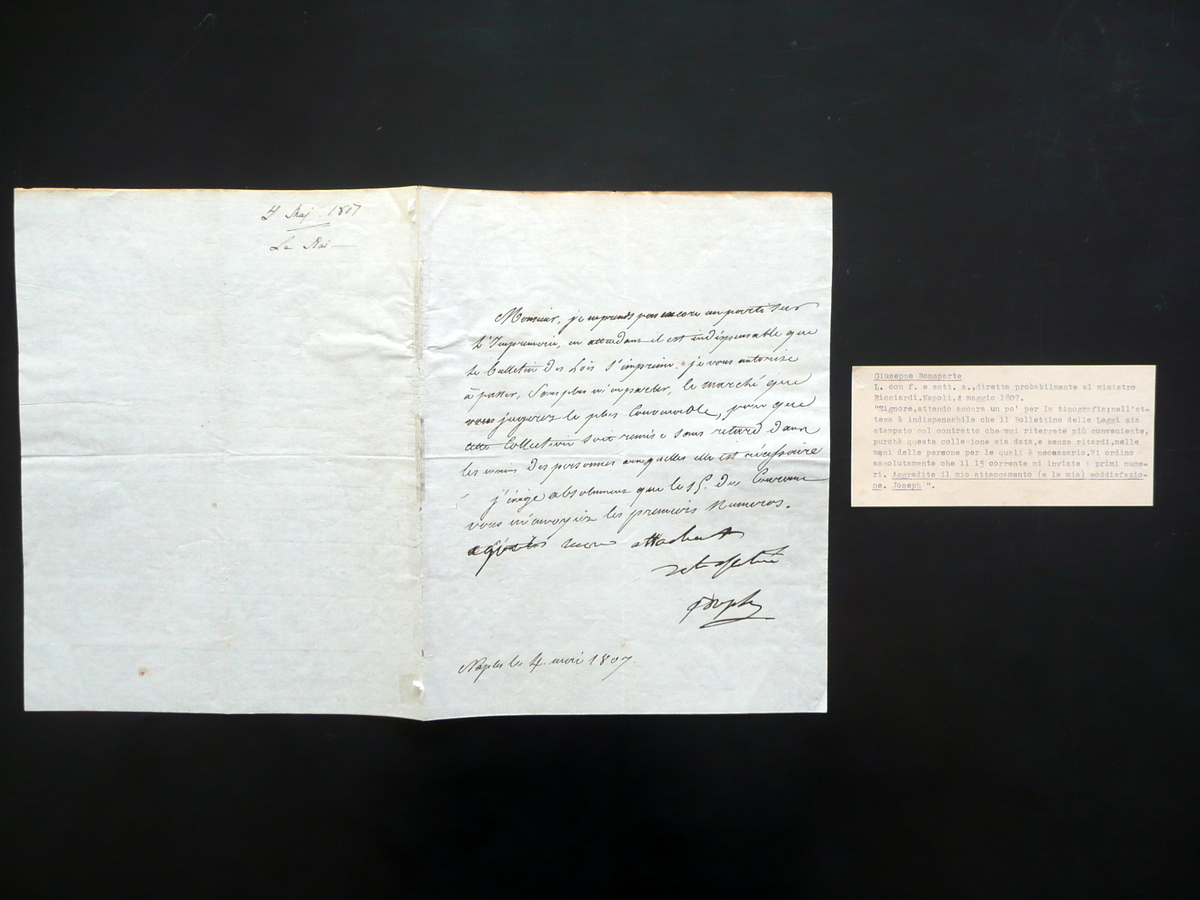 4 Maj 1807
Le Roi
Monsieur, je ne prends pas encore un parti sur
L'Imprimerie, en attendant il est indispensable que
le bulletin des Lois s'imprime. je vous autorise
à passer, Sans plus m'en parler, le marché que
vous jugerez le plus Convenable, pour que
cette Collection soit remise sans retard dans
les mains des personnes auxquelles elle est nécessaire
j'exige absolument que le 15. du Courant
vous m'envoyiez les premiers Numeros.
agréez mon attachement
Joseph
Naples le 4. mai 1807.
Giuseppe Bonaparte
L. con f. e sott. a.,diretta probabilmente al ministro
Ricciardi.Napoli,4 maggio 1807.
"Signore,attendo ancora un po' per la tipografia;nell'at-
tesa è indispensabile che il Bollettino delle Leggi sia
stampato col contratto che voi riterrete più conveniente,
purchè questa collezione sia data,e senza ritardi,nelle
mani delle persone per le quali è necessario.Vi ordino
assolutamente che il 15 corrente mi inviate i primi nume-
ri. Aggradite il mio attaccamento (e la mia) soddisfazio-
ne. Joseph ".